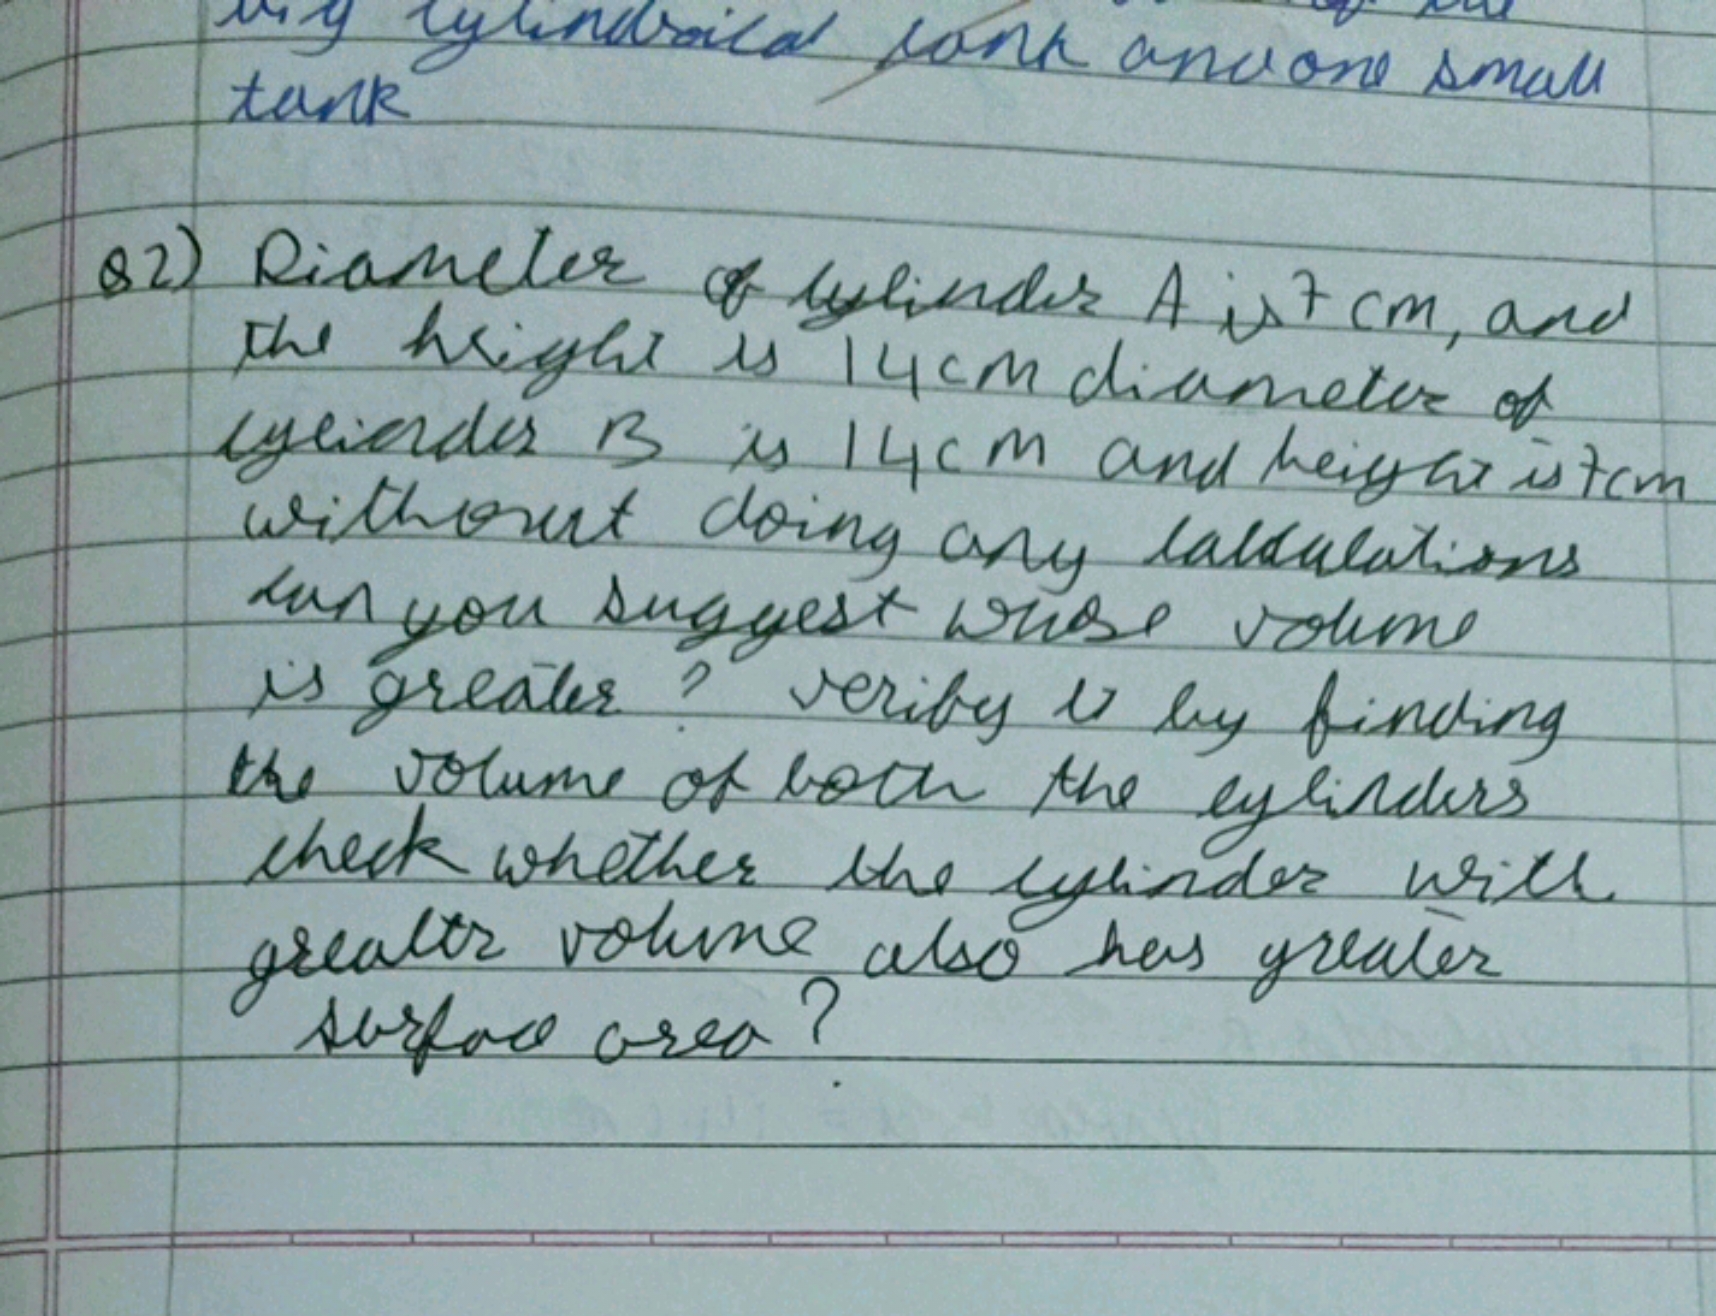 big cylindrical tank and one small
tank
Q2) Diameter of cylinder A is 7 cm, and
the height is 14cm diameter of
cylinder B is 14cm and height is 7cm
without doing any calculations
can you suggest whose volume
is greater ? verify it by finding
the volume of both the cylinders
check whether the cylinder with
greater volume also has greater
surface area ?